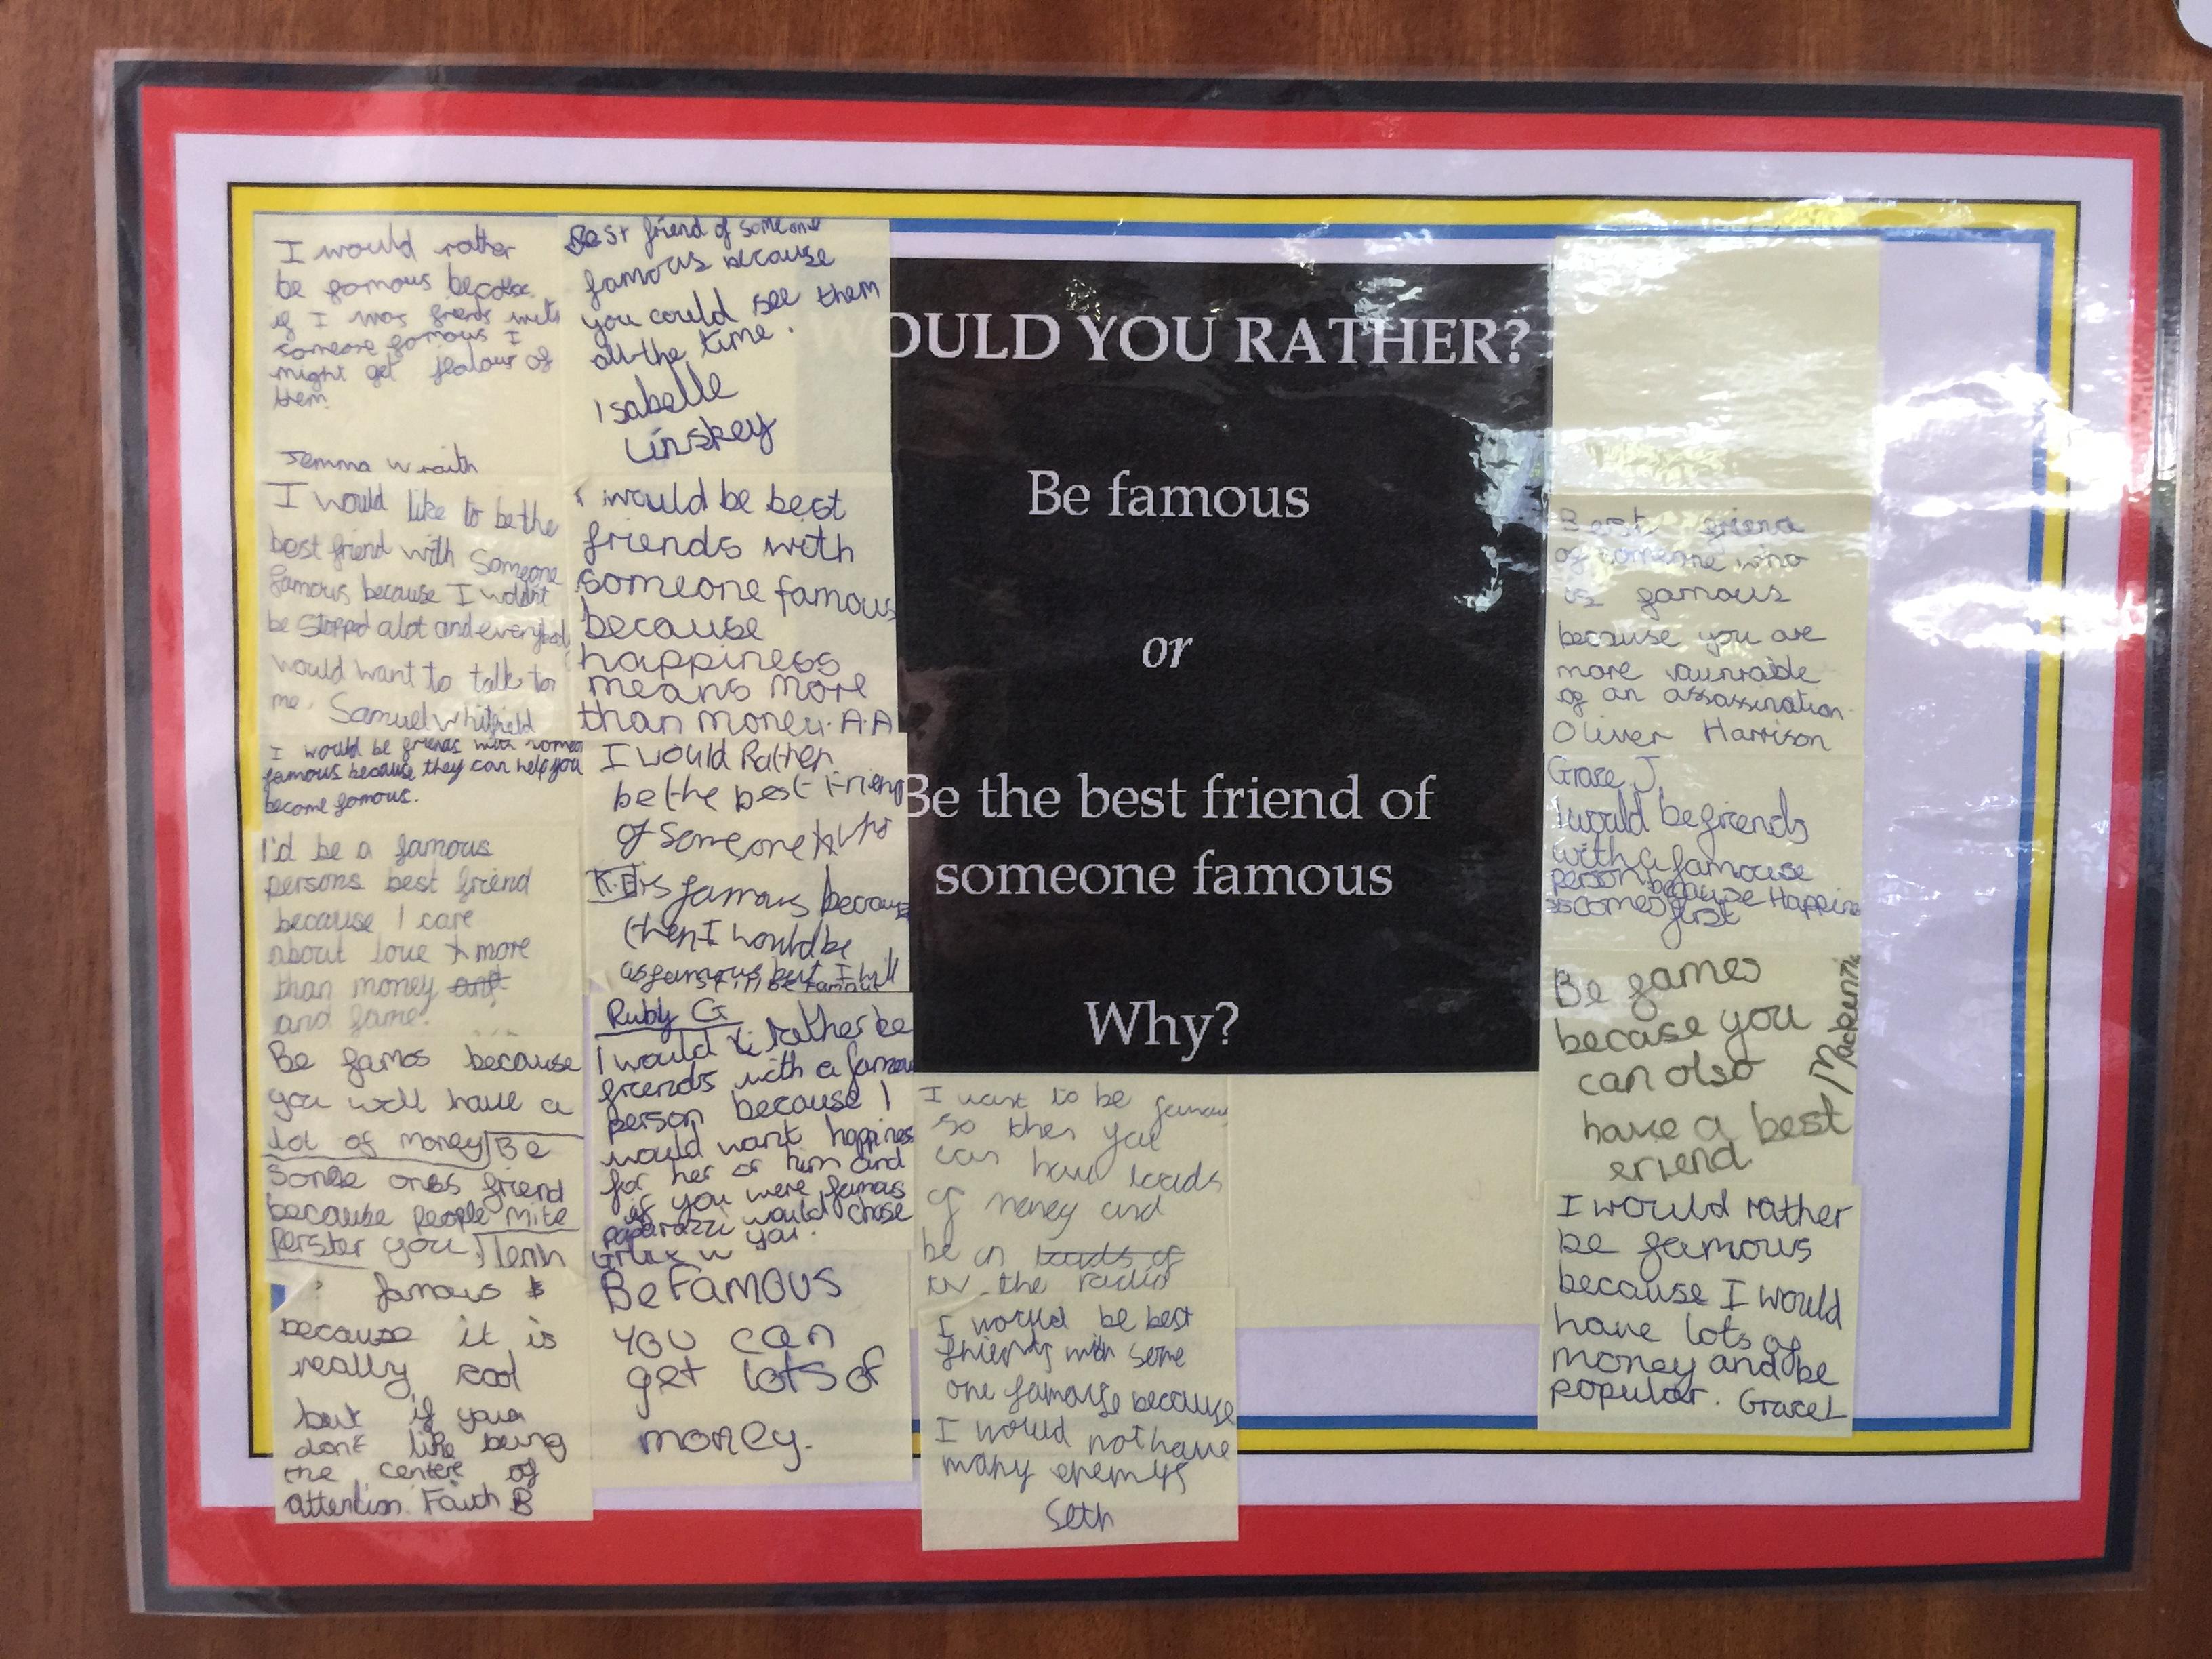 I would rather
be famous because
if I was friends with
someone famous I
might get jealous of
them.
Jemma Wraith
I would like to be the
best friend with Someone
famous because I woldnt
be Stopped alot and
would want to talk to
me. Samuel Whitfield
I would be friends with
famous because they can help you
become famous.
I'd be a famous
persons best friend
because I care
about love more
than money
and fame.
Be famos because
you will have a
lot of money Be
ones friend
because people mite
perster you
famous
because it is
really cool
but if your
dont like being
the centere of
attention. Faith B
Best friend of someone
famous because
you could see them
all the time.
Isabelle
Linskey
I would be best
friends with
someone famous
because
happiness
means more
than money. A.A
I would Rather
be the best Friend
of someone who
is famous because
then I would be
as famous but I
still be famous
Ruby G
I would rather be
friends with a famous
person because I
would want happiness
for her or him and
if you were famous
paparazzi would chase
you.
W
Be Famous
you can
get lots of
money.
OULD YOU RATHER?
Be famous
or
Be the best friend of
someone famous
Why?
I want to be famous
so then you
can have loads
of money and
be on loads of
tv the radio
I would be best
friends with some
one famouse because
I would not have
many enemys
Seth
Best friend
of someone who
is famous
because you are
more
of an assassination
Oliver Harrison
Grace J
I would be friends
with a famouse
person because Happin
ess comes first
Be fames
becase you
can also
have a best
eriend
Mackenzie
I would rather
be famous
because I would
have lots of
money and be
popular. Grace L